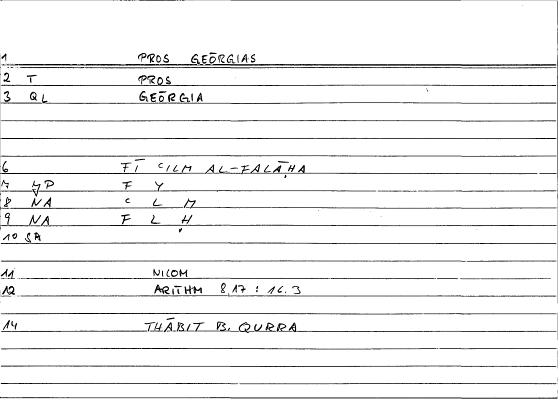 1 PROS GEŌRGIAS
2 T PROS
3 QL GEŌRGIA
6 FĪ ʿILM AL-FALĀḤA
7 F Y
8 NA ʿ L M
9 NA F L Ḥ
10 SA
11 NICOM
12 ARITHM 8,17 : 16.3
14 THĀBIT B. QURRA